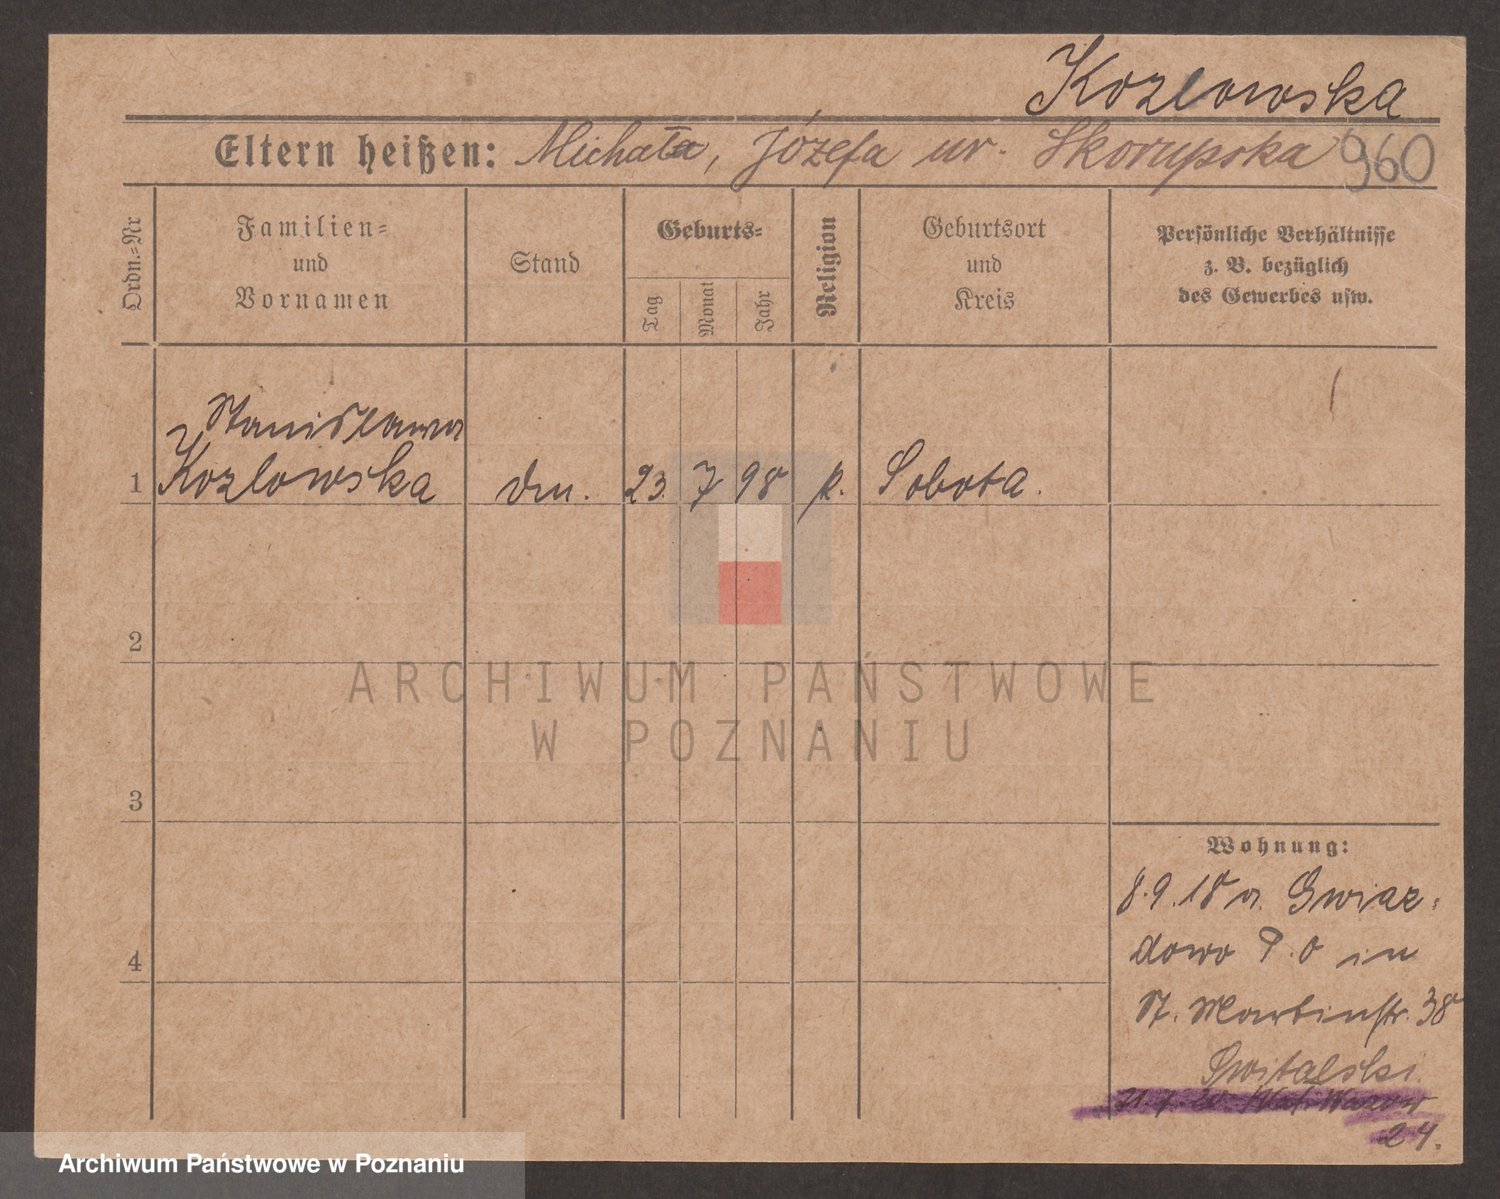 Kozlowska
Eltern heißen: Michała, Józefa ur. Skorupska 960
Ordn.-Nr
Familien-
und
Vornamen
Stand
Geburts-
Tag
Monat
Jahr
Religion
Geburtsort
und
Kreis
Persönliche Verhältnisse
z. B. bezüglich
des Gewerbes usw.
Stanislawa
1 Kozlowska 23. 7 98 k. Sobota.
2
3
4
ARCHIWUM PAŃSTWOWE
W POZNANIU
Wohnung:
8.9.18 a. Gwiaz-
dowo P.O in
St. Martinstr. 38
Switalski
24.
Archiwum Państwowe w Poznaniu